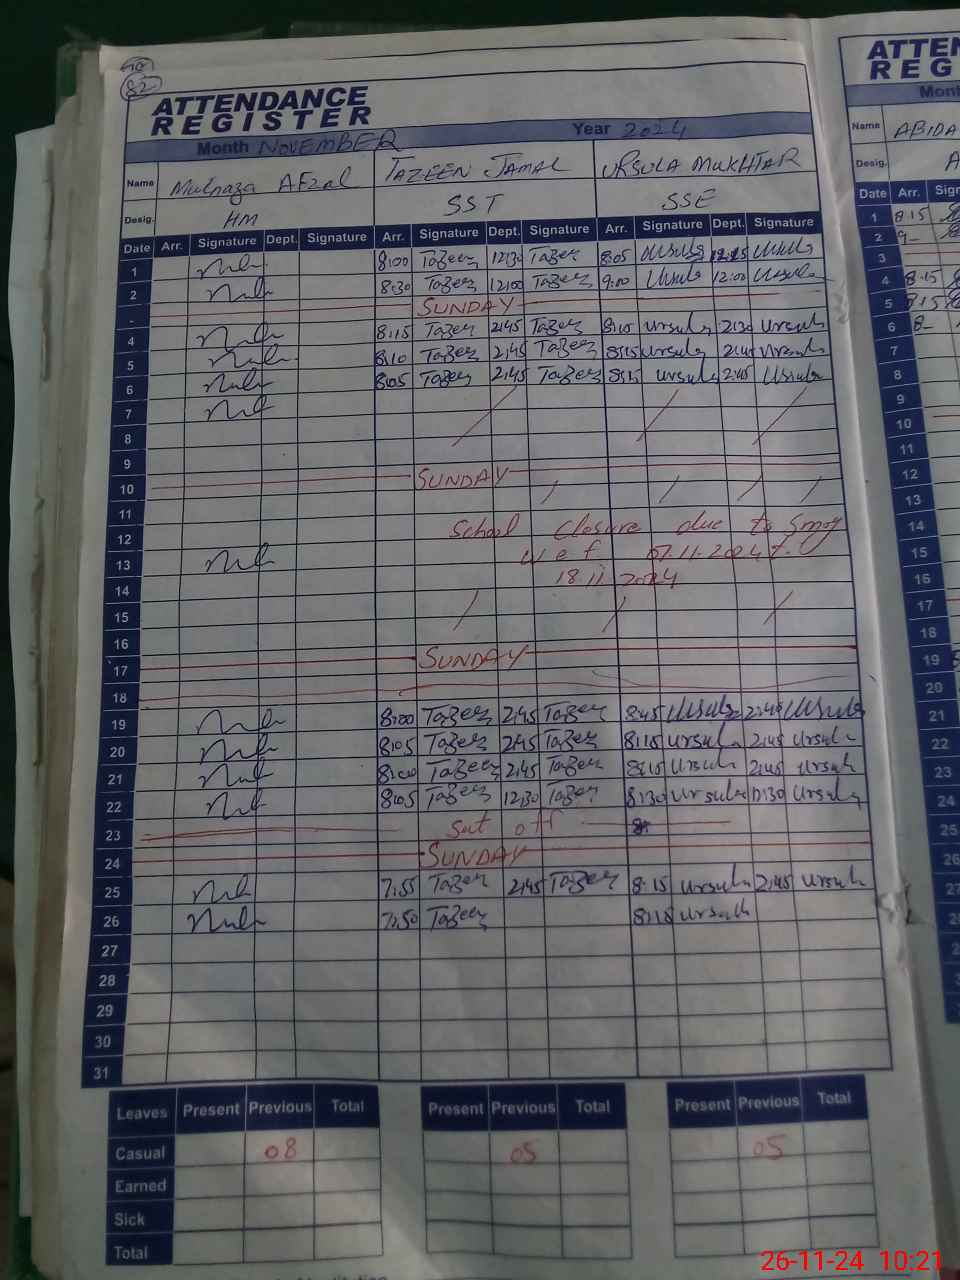 82
ATTENDANCE
REGISTER
Month NOVEMBER Year 2024
Name AFZAL TAZEEN JAMAL URSULA MUKHTAR
Desig. HM SST SSE
Date Arr. Signature Dept. Signature Arr. Signature Dept. Signature Arr. Signature Dept. Signature
1 8:00 Tazeen 12:30 Tazeen 8:05 Ursula 12:15 Ursula
2 8:30 Tazeen 12:00 Tazeen 9:00 Ursula 12:00 Ursula
SUNDAY
4 8:15 Tazeen 2:45 Tazeen 8:10 Ursula 2:30 Ursula
5 8:10 Tazeen 2:45 Tazeen 8:15 Ursula 2:45 Ursula
6 8:05 Tazeen 2:45 Tazeen 8:15 Ursula 2:45 Ursula
7
8
9
10 SUNDAY
11
12 School closure due to Smog
13 w e f 07.11.2024 t.
14 18.11.2024
15
16
17 SUNDAY
18
19 8:00 Tazeen 2:45 Tazeen 8:45 Ursula 2:45 Ursula
20 8:05 Tazeen 2:45 Tazeen 8:15 Ursula 2:45 Ursula
21 8:00 Tazeen 2:45 Tazeen Ursula 2:45 Ursula
22 8:05 Tazeen 12:30 Tazeen 8:30 Ursula 12:30 Ursula
23 Sat off
24 SUNDAY
25 7:55 Tazeen 2:45 Tazeen 8:15 Ursula 2:45 Ursula
26 7:50 Tazeen 8:18 Ursula
27
28
29
30
31
Leaves Present Previous Total Present Previous Total Present Previous Total
Casual 08 05 05
Earned
Sick
Total
ATTEN
REG
Mont
Name ABIDA
Desig. A
Date Arr. Sign
1 8:15
2 9-
3
4 8:15
5 8:15
6 8-
7
8
9
10
11
12
13
14
15
16
17
18
19
20
21
22
23
24
25
26
27
26-11-24 10:21